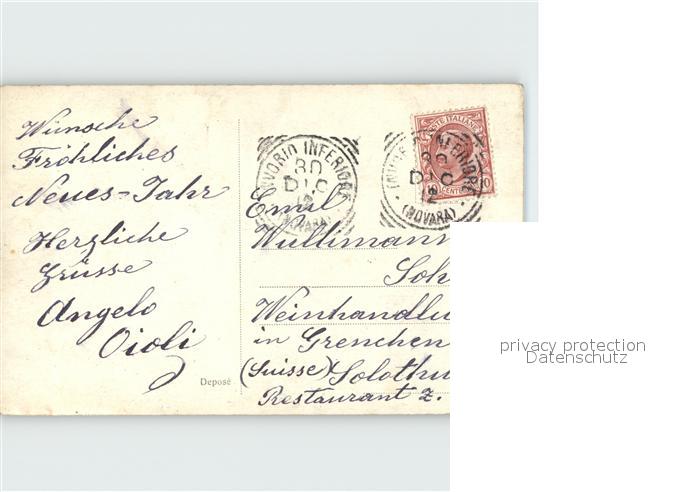 Wünsche
Fröhliches
Neues-Jahr
Herzliche
Grüsse
Angelo
Oioli
Deposé
INVORIO INFERIORE
30
DIC
12
(NOVARA)
POSTE ITALIANE
INFERIORE
30
DIC
12
(NOVARA)
Emil
Wullimann
Soh
Weinhandlu
in Grenchen
(Suisse) Solothu
Restaurant z.
privacy protection
Datenschutz